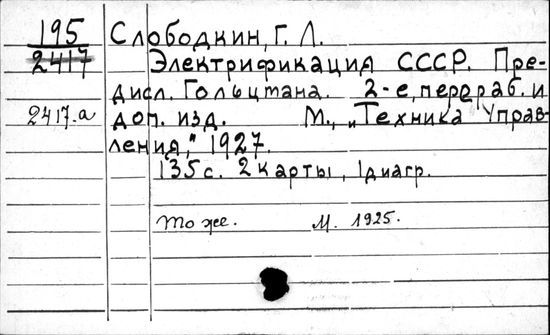 195 Слободкин, Г. Л.
2417 Электрификация СССР. Пре-
дисл. Гольцмана. 2-е, перераб. и
2417.а доп. изд. М., „Техника Управ-
ления," 1927.
135 с. 2 карты, 1 диагр.
То же. М. 1925.